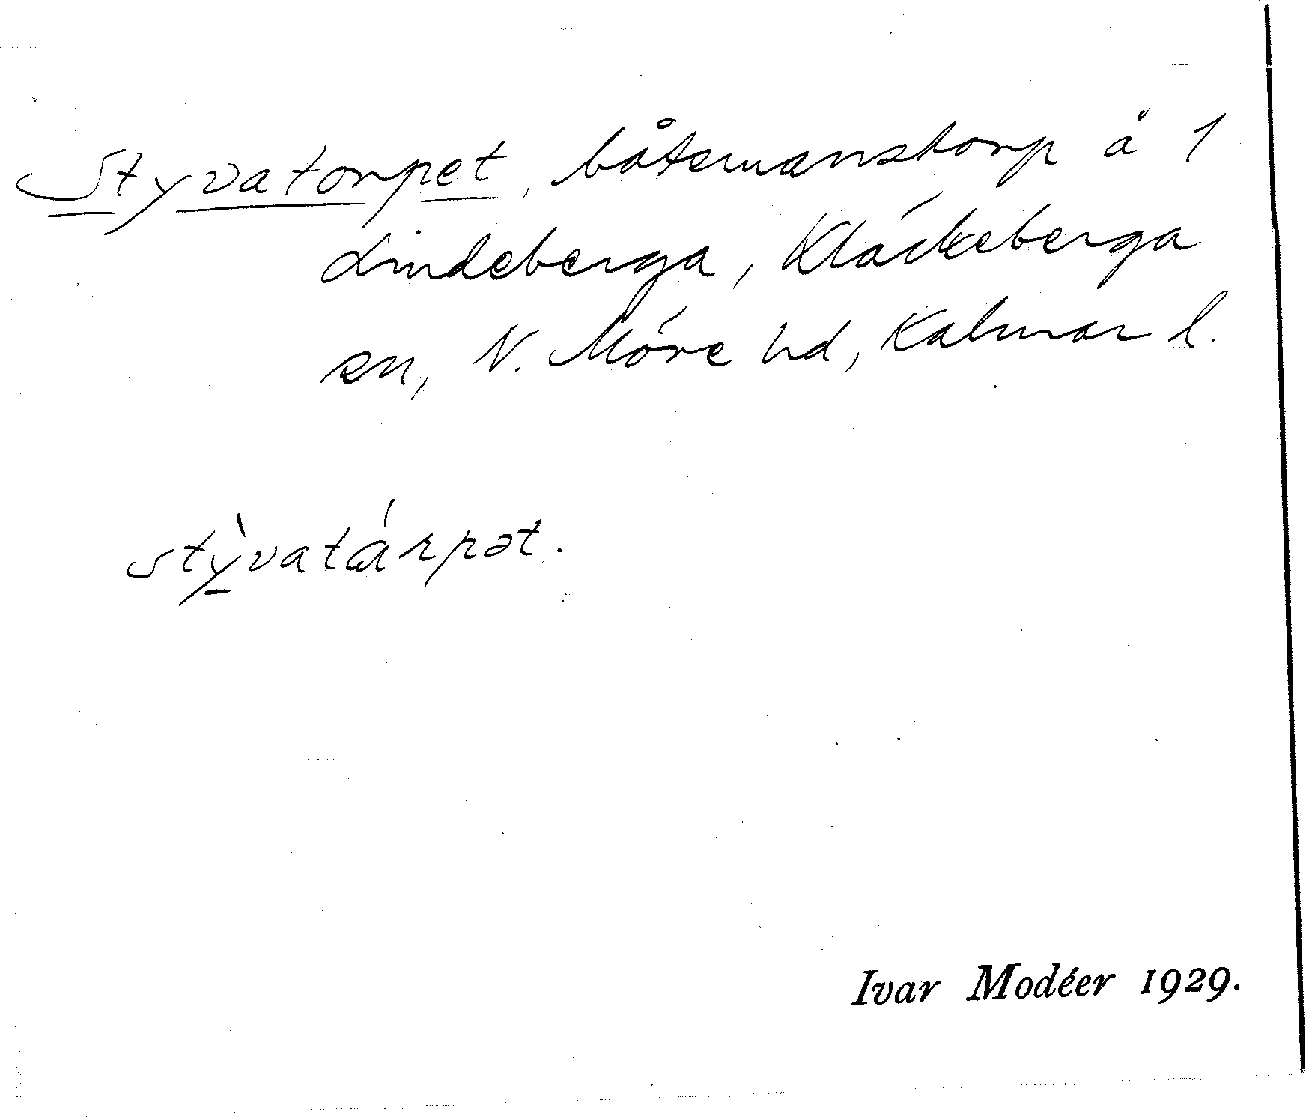 Styvatorpet, båtsmanstorp å 1
Lindeberga, Kláckeberga
sn, N. Móre hd, Kalmar l.
stỳvatárpət.
Ivar Modéer 1929.